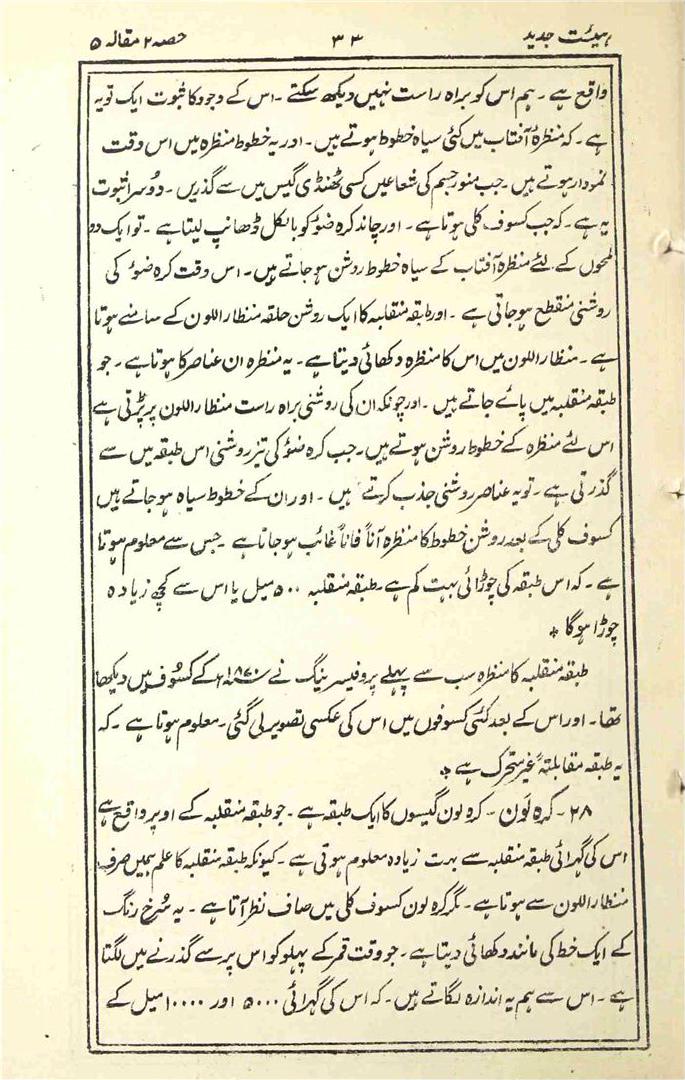 ہیئت جدید ۳۳ حصہ ۲ مقالہ ۵
واقع ہے ۔ ہم اس کو براہ راست نہیں دیکھ سکتے ۔ اس کے وجود کا ثبوت ایک تو یہ
ہے ۔ کہ منظرہ آفتاب میں کئی سیاہ خطوط ہوتے ہیں ۔ اور یہ خطوط منظرہ میں اس وقت
نمودار ہوتے ہیں ۔ جب منور جسم کی شعاعیں کسی ٹھنڈی گیس میں سے گذریں ۔ دُوسرا ثبوت
یہ ہے ۔ کہ جب کسوف کلی ہوتا ہے ۔ اور چاند کرہ ضوئ کو بالکل ڈھانپ لیتا ہے ۔ تو ایک دو
لمحوں کے لئے منظرہ آفتاب کے سیاہ خطوط روشن ہو جاتے ہیں ۔ اس وقت کرہ ضوئ کی
روشنی منقطع ہو جاتی ہے ۔ اور طبقہ منقلبہ کا ایک روشن حلقہ منظار اللون کے سامنے ہوتا
ہے ۔ منظار اللون میں اس کا منظرہ دکھائی دیتا ہے ۔ یہ منظرہ ان عناصر کا ہوتا ہے ۔ جو
طبقہ منقلبہ میں پائے جاتے ہیں ۔ اور چونکہ ان کی روشنی براہ راست منظار اللون پر پڑتی ہے
اس لئے منظرہ کے خطوط روشن ہوتے ہیں ۔ جب کرہ ضوئ کی تیز روشنی اس طبقہ میں سے
گذرتی ہے ۔ تو یہ عناصر روشنی جذب کرتے ہیں ۔ اور ان کے خطوط سیاہ ہو جاتے ہیں
کسوف کلی کے بعد روشن خطوط کا منظرہ آناً فاناً غائب ہو جاتا ہے ۔ جس سے معلوم ہوتا
ہے ۔ کہ اس طبقہ کی چوڑائی بہت کم ہے ۔ طبقہ منقلبہ ۵۰۰ میل یا اس سے کچھ زیادہ
چوڑا ہوگا *
طبقہ منقلبہ کا منظرہ سب سے پہلے پروفیسر ینگ نے ۱۸۷۰ء کے کسوف میں دیکھا
تھا ۔ اور اس کے بعد کئی کسوفوں میں اس کی عکسی تصویر لی گئی ۔ معلوم ہوتا ہے ۔ کہ
یہ طبقہ مقابلتہً غیر متحرک ہے *
۲۸ ۔ کرہ لَون ۔ کرہ لون گیسوں کا ایک طبقہ ہے ۔ جو طبقہ منقلبہ کے اوپر واقع ہے
اس کی گہرائی طبقہ منقلبہ سے بہت زیادہ معلوم ہوتی ہے ۔ کیونکہ طبقہ منقلبہ کا علم ہمیں صرف
منظار اللون سے ہوتا ہے ۔ مگر کرہ لون کسوف کلی میں صاف نظر آتا ہے ۔ یہ سُرخ رنگ
کے ایک خط کی مانند دکھائی دیتا ہے ۔ جو وقت قمر کے پہلو کو اس پر سے گذرنے میں لگتا
ہے ۔ اس سے ہم یہ اندازہ لگاتے ہیں ۔ کہ اس کی گہرائی ۵۰۰۰ اور ۱۰۰۰۰ میل کے